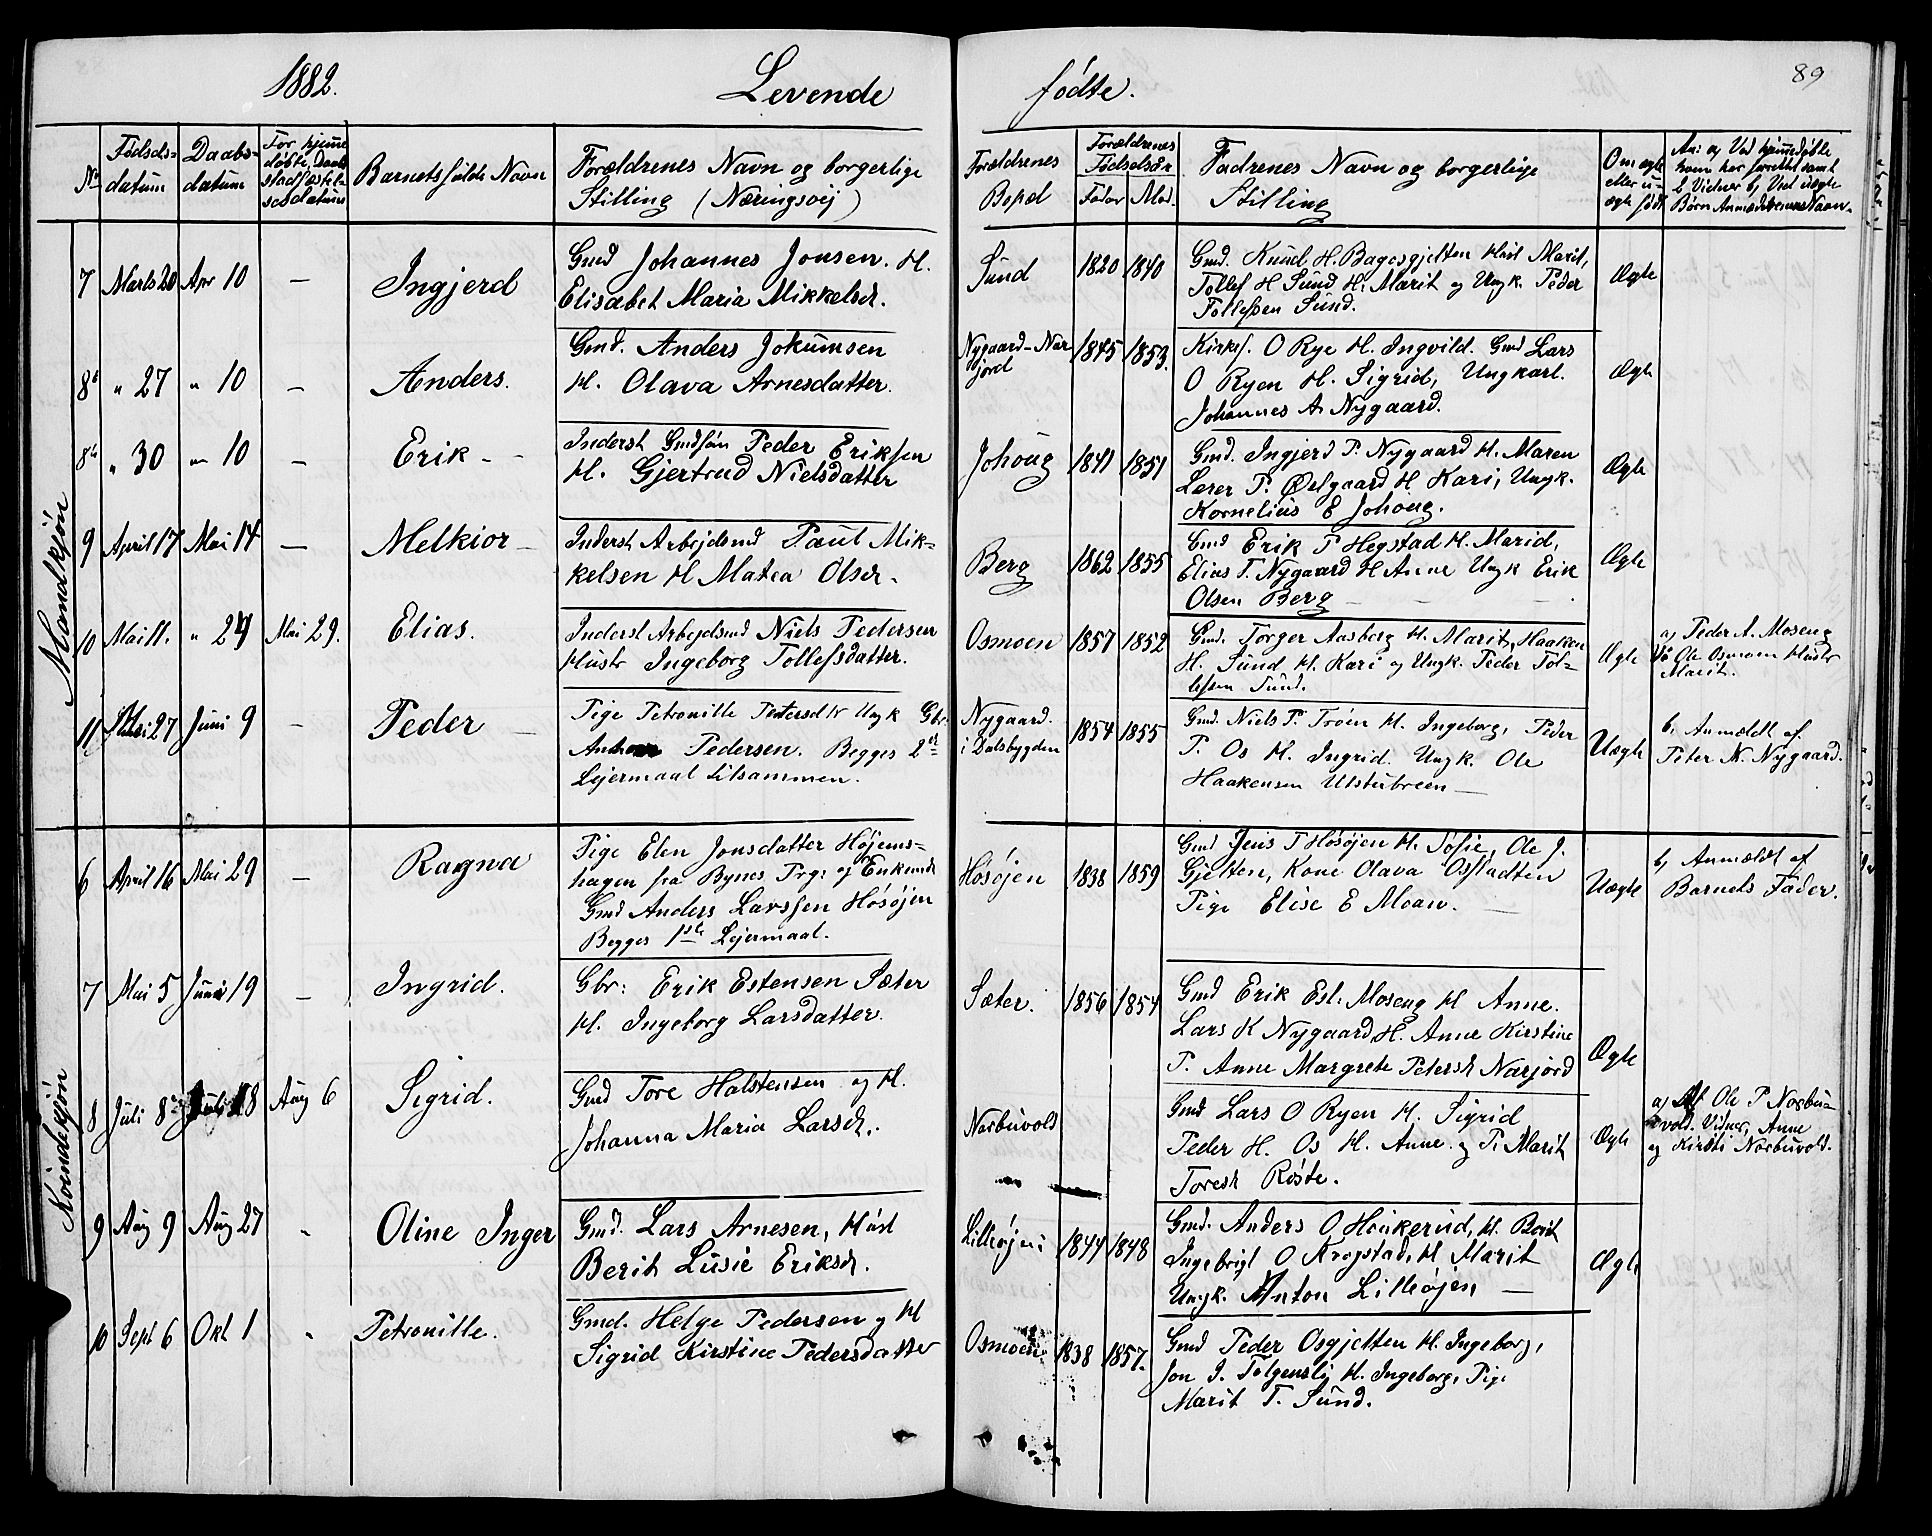 1882. Levende fødte. 89
No Fødsels-datum Daabs-datum For hjemmedøbte Daabs stadfæstelses datum Barnets fulde Navn Forældrenes Navn og borgerlige Stilling (Næringsvej) Forældrenes Bopæl Forældrenes Fødselsår Fader Mod. Fadrenes Navn og borgerlige Stilling Om ægte eller uægte født
Mandkjøn
7 Marts 20 Apr 10 — Ingjerd
Gmd Johannes Jonsen. H.
Elisabet Maria Mikkelsd.
Sund 1820 1840
Gmd. Knud H. Bagosgjelten Hust Marit,
Tollef H Sund H. Marit og Ungk. Peder
Tollefsen Sund.
Ægte
8a " 27 " 10 — Anders.
Gmd. Anders Jokumsen
H. Olava Arnesdatter.
Nygaard-Narjord 1845 1853.
Kirkes. O Rye H. Ingvild. Gmd Lars
O Ryen H. Sigrid, Ungkarl.
Johannes A. Nygaard.
Ægte
8b " 30 " 10 — Erik
Inderst Gmdsøn Peder Eriksen
H. Gjertrud Nielsdatter
Johoug 1841 1851
Gmd. Ingjerd P. Nygaard H. Maren
Lærer P. Øelgaard H Kari, Ungk.
Kornelius E Johoug.
Ægte
9 April 17 Mai 14 — Melkior
Inderst Arbejdsmd Paul Mik-
kelsen H Matea Olsd.
Berg 1862 1855
Gmd Erik P Hegstad H. Marid,
Elias T. Nygaard H Anne Ungk Erik
Olsen Berg
Ægte
10 Mai 11. " 29 Mai 29. Elias.
Inderst Arbejdsmd Niels Pedersen
Hustr Ingeborg Tollefsdatter.
Osmoen 1857 1852
Gmd. Torger Aasberg H. Marit, Haaken
H. Sund H. Kari og Ungk. Peder Tol-
lefsen Sund.
Ægte
a) Peder A. Moseng
Ole Osmoen Hustr
Marit.
11 Mai 27 Juni 9 — Peder
Pige Petronille Petersdtr Ungk Gbr.
Pedersen. Begges 2det
Lejermaal tilsammen.
Nygaard. i Dalsbygden 1854 1855
Gmd. Niels P. Trøen H. Ingeborg, Peder
P. Os H. Ingrid. Ungk. Ole
Haakensen Utstubreen
Uægte
b, Anmældt af
Peter N. Nygaard.
Kvindekjøn
6 April 16 Mai 29 — Ragna
Pige Elen Jonsdatter Højems-
hagen fra Bynes Prg: og Enkemd
Gmd Anders Larssen Høsøjen
Begges 1ste Lejermaal.
Høsøjen 1838 1859
Gmd Jens P Høsøjen H. Sofie, Ole J.
Gjelten, Kone Olava Osstadten
Pige Elise E Moan.
Uægte
b, Anmældt af
Barnets Fader.
7 Mai 5 Juni 19 — Ingrid.
Gbr: Erik Estensen Sæter
H. Ingeborg Larsdatter.
Sæter. 1856 1854
Gmd Erik Est. Moseng H Anne.
Lars K Nygaard H. Anne Kirstine
P. Anne Margrete Petersd Narjord
Ægte
8 Juli 8 Juli 18 Aug 6 Sigrid.
Gmd Tore Halstensen og H.
Johanna Maria Larsd.
Narbuvold
Gmd Lars O Ryen H. Sigrid
Peder H. Os H. Anne og P. Marit
Toresd Røste.
Ægte
a) Af Ole P Narbu-
vold. Vidner, Anne
og Kirsti Narbuvold.
9 Aug 9 Aug 27 " Oline Inger
Gmd. Lars Arnesen, Hust
Berit Lusie Eriksd.
Lilleøjen 1844 1848
Gmd. Anders O Honkerud, H. Berit
Ingebrigt O Krogstad, H Marit
Ungk. Anton Lilleøjen
Ægte
10 Sept 6 Okt 1 " Petronille.
Gmd. Helge Pedersen og H
Sigrid Kirstine Pedersdatter
Osmoen 1838 1857.
Gmd Peder Osgjelten H. Ingeborg,
Jon J. Tolgensli H. Ingeborg, Pige
Marit T. Sund.